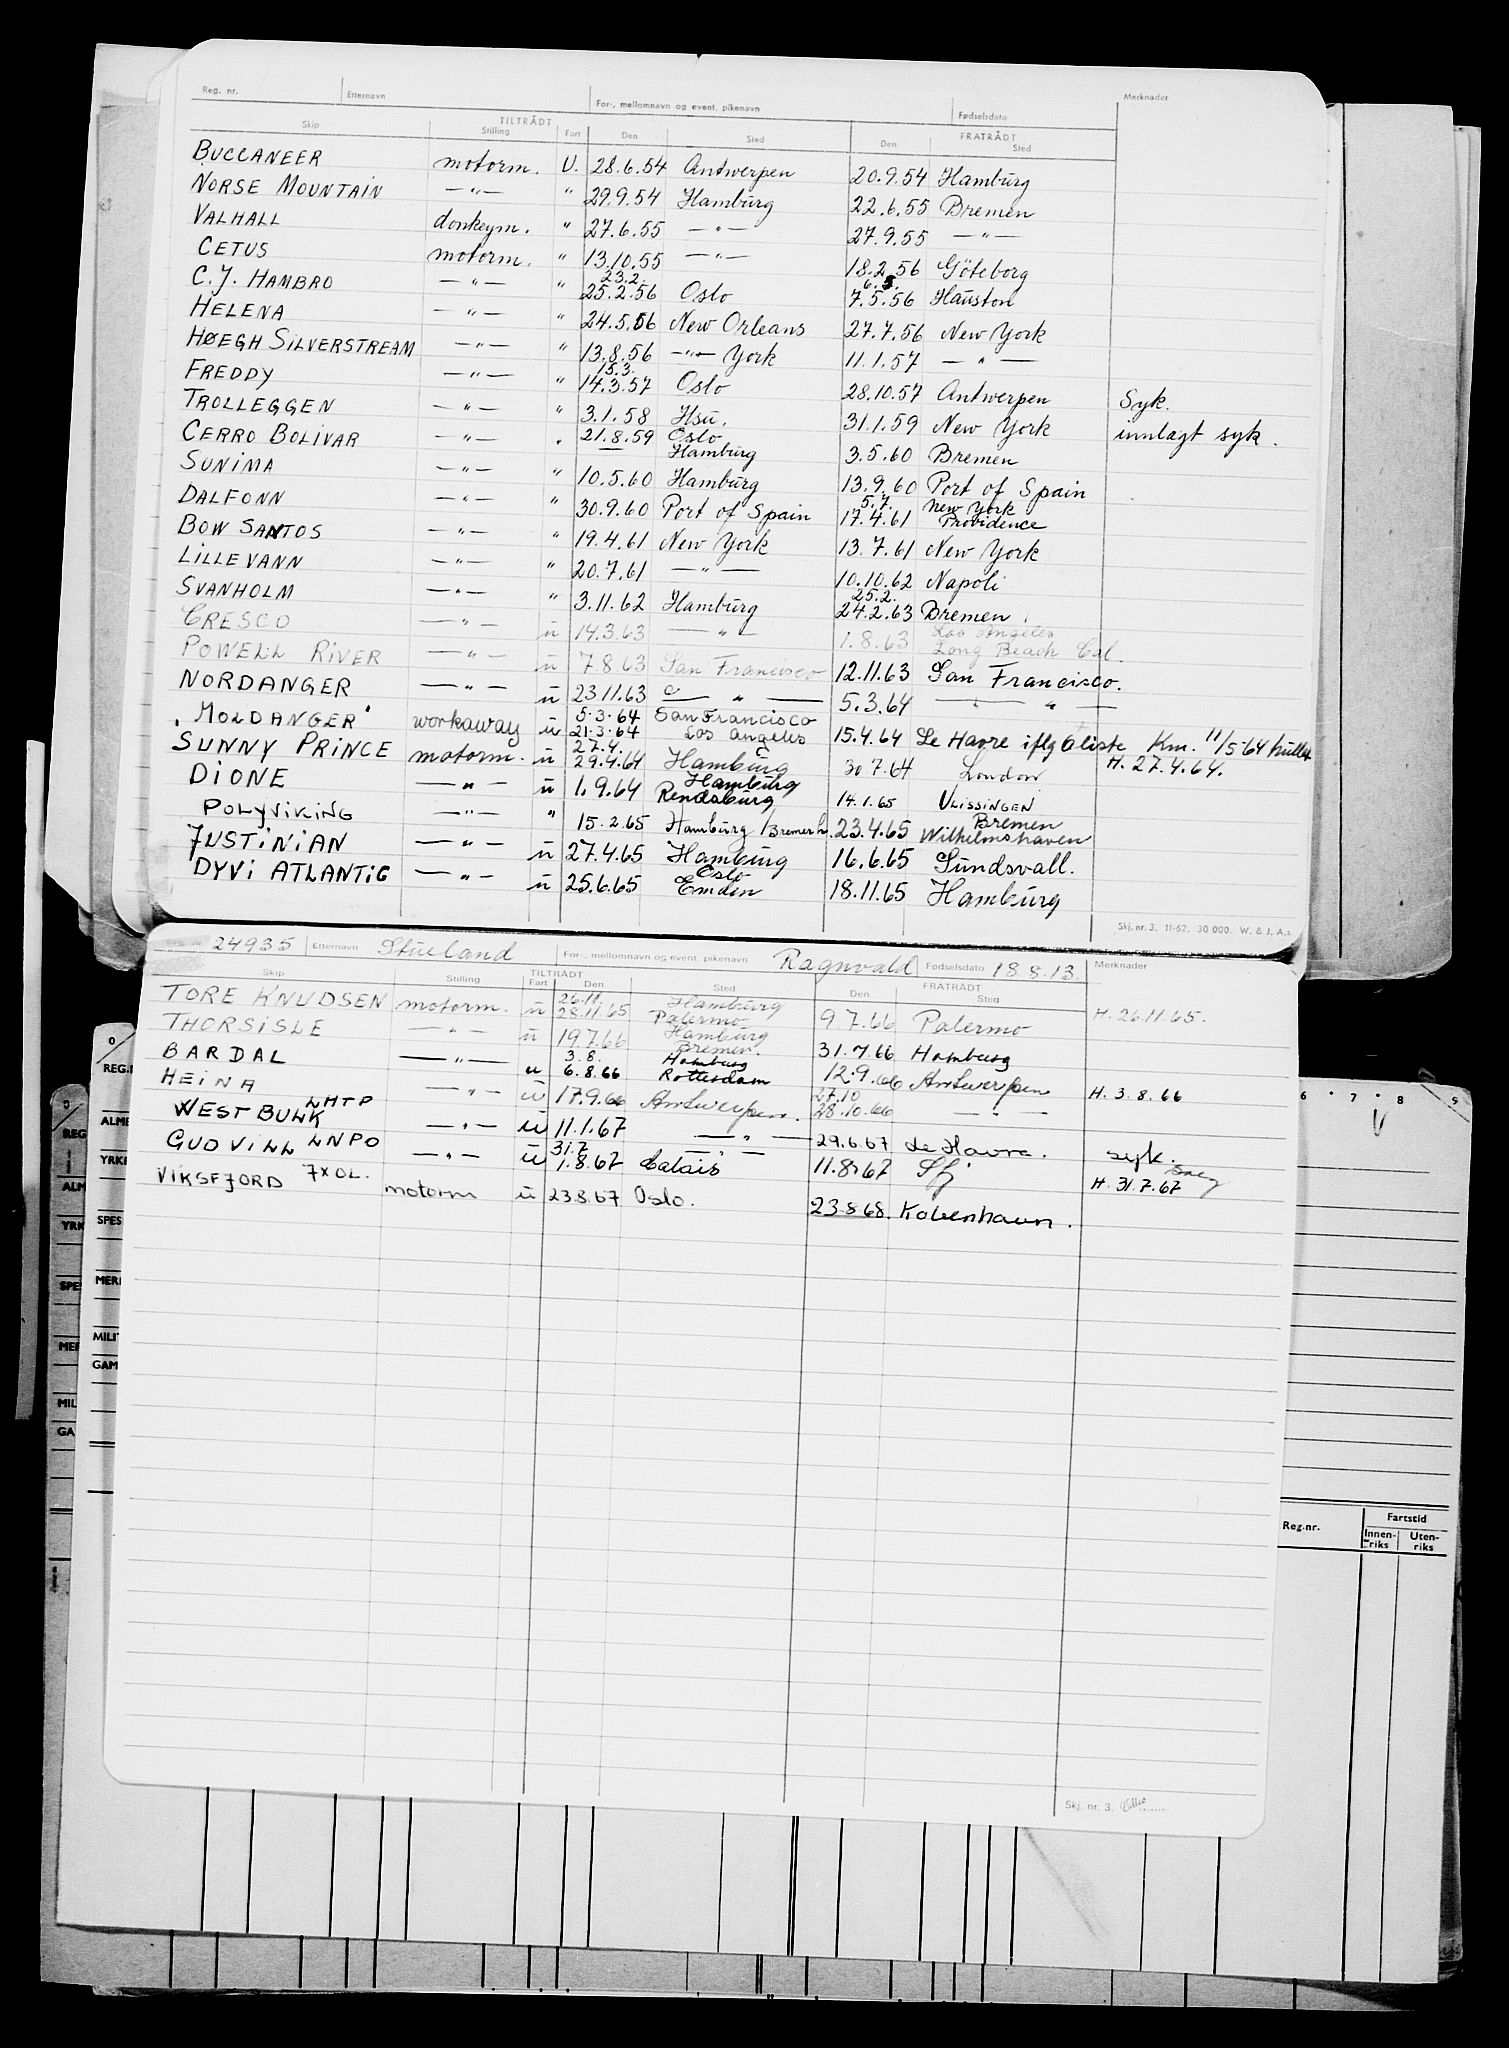 Reg. nr. Etternavn For-, mellomnavn og event. pikenavn Fødselsdato Merknader
TILTRÅDT FRATRÅDT
Skip Stilling Fart Den Sted Den Sted
BUCCANEER motorm. U. 28.6.54 Antwerpen 20.9.54 Hamburg
NORSE MOUNTAIN —"— " 29.9.54 Hamburg 22.6.55 Bremen
VALHALL donkeym. " 27.6.55 —"— 27.9.55 —"—
CETUS motorm. " 13.10.55 —"— 18.2.56 Göteborg
23.2. 6.5.
C.J. HAMBRO —"— " 25.2.56 Oslo 7.5.56 Hauston
HELENA —"— " 24.5.56 New Orleans 27.7.56 New York
HØEGH SILVERSTREAM —"— " 13.8.56 —"— York 11.1.57 —"—
15.3.
FREDDY —"— " 14.3.57 Oslo 28.10.57 Antwerpen Syk.
TROLLEGGEN —"— " 3.1.58 Hsu. 31.1.59 New York innlagt syk.
CERRO BOLIVAR —"— " 21.8.59 Oslo 3.5.60 Bremen
— Hamburg
SUNIMA —"— " 10.5.60 Hamburg 13.9.60 Port of Spain
5.7. New York
DALFONN —"— " 30.9.60 Port of Spain 17.4.61 Providence
BOW SANTOS —"— " 19.4.61 New York 13.7.61 New York
LILLEVANN —"— " 20.7.61 —"— 10.10.62 Napoli
25.2.
SVANHOLM —"— " 3.11.62 Hamburg 24.2.63 Bremen
Los Angeles
CRESCO —"— u 14.3.63 —"— 1.8.63 Long Beach Cal.
POWELL RIVER —"— u 7.8.63 San Francisco 12.11.63 San Francisco.
NORDANGER —"— u 23.11.63 —"— 5.3.64 —"—
5.3.64 San Francisco
"MOLDANGER" workaway u 21.3.64 Los Angeles 15.4.64 Le Havre iflg bliste Km. 11/5-64
27.4.
SUNNY PRINCE motorm. u 29.4.64 Hamburg 30.7.64 London H. 27.4.64.
Hamburg
DIONE —"— u 1.9.64 Rendsburg 14.1.65 VLISSINGEN
Bremen
POLYVIKING —"— " 15.2.65 Hamburg/Bremerh. 23.4.65 Wilhelmshaven
JUSTINIAN —"— u 27.4.65 Hamburg 16.6.65 Sundsvall.
Oslo
DYVI ATLANTIC —"— u 25.6.65 Emden 18.11.65 Hamburg
Skj. nr. 3. 11-62. 30 000. W. & J. A.s
24935 Etternavn Stueland For-, mellomnavn og event. pikenavn Ragnvald Fødselsdato 18.8.13. Merknader
TILTRÅDT FRATRÅDT
Skip Stilling Fart Den Sted Den Sted
26.11. Hamburg
TORE KNUDSEN motorm. u 28.11.65 Palermo 9.7.66 Palermo H. 26.11.65.
Hamburg
THORSISLE —"— u 19.7.66 Bremen. 31.7.66 Hamburg
3.8. Hamburg
BARDAL —"— u 6.8.66 Rotterdam 12.9.66 Antwerpen H. 3.8.66
27.10
HEINA —"— u 17.9.66 Antwerpen. 28.10.66 —"—
WEST BULK LHTP —"— u 11.1.67 —"— 29.6.67 Le Havre. syk.
31.7
GUDVILL LNPO —"— u 1.8.67 Calais 11.8.67 Sfj H. 31.7.67
VIKSFJORD JXOL. motorm u 23.8.67 Oslo. 23.8.68. København.
Skj. nr. 3.
6 • 7 • 8 9
O
REG.
ALME
YRKE
SPES
MERI
MILIT
GAM
REG
ALM
YRK
SPE
MER
MIL
GA
Reg.nr. Fartstid
Innen-riks Uten-riks